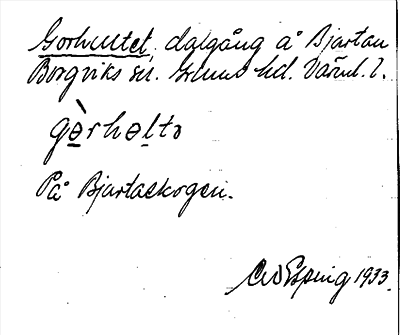 Gorhultet, dalgång å Bjartan
Borgviks sn. Grums hd. Värml. l.
gə̀rhəltə
På Bjartaskogen.
Esping 1933.